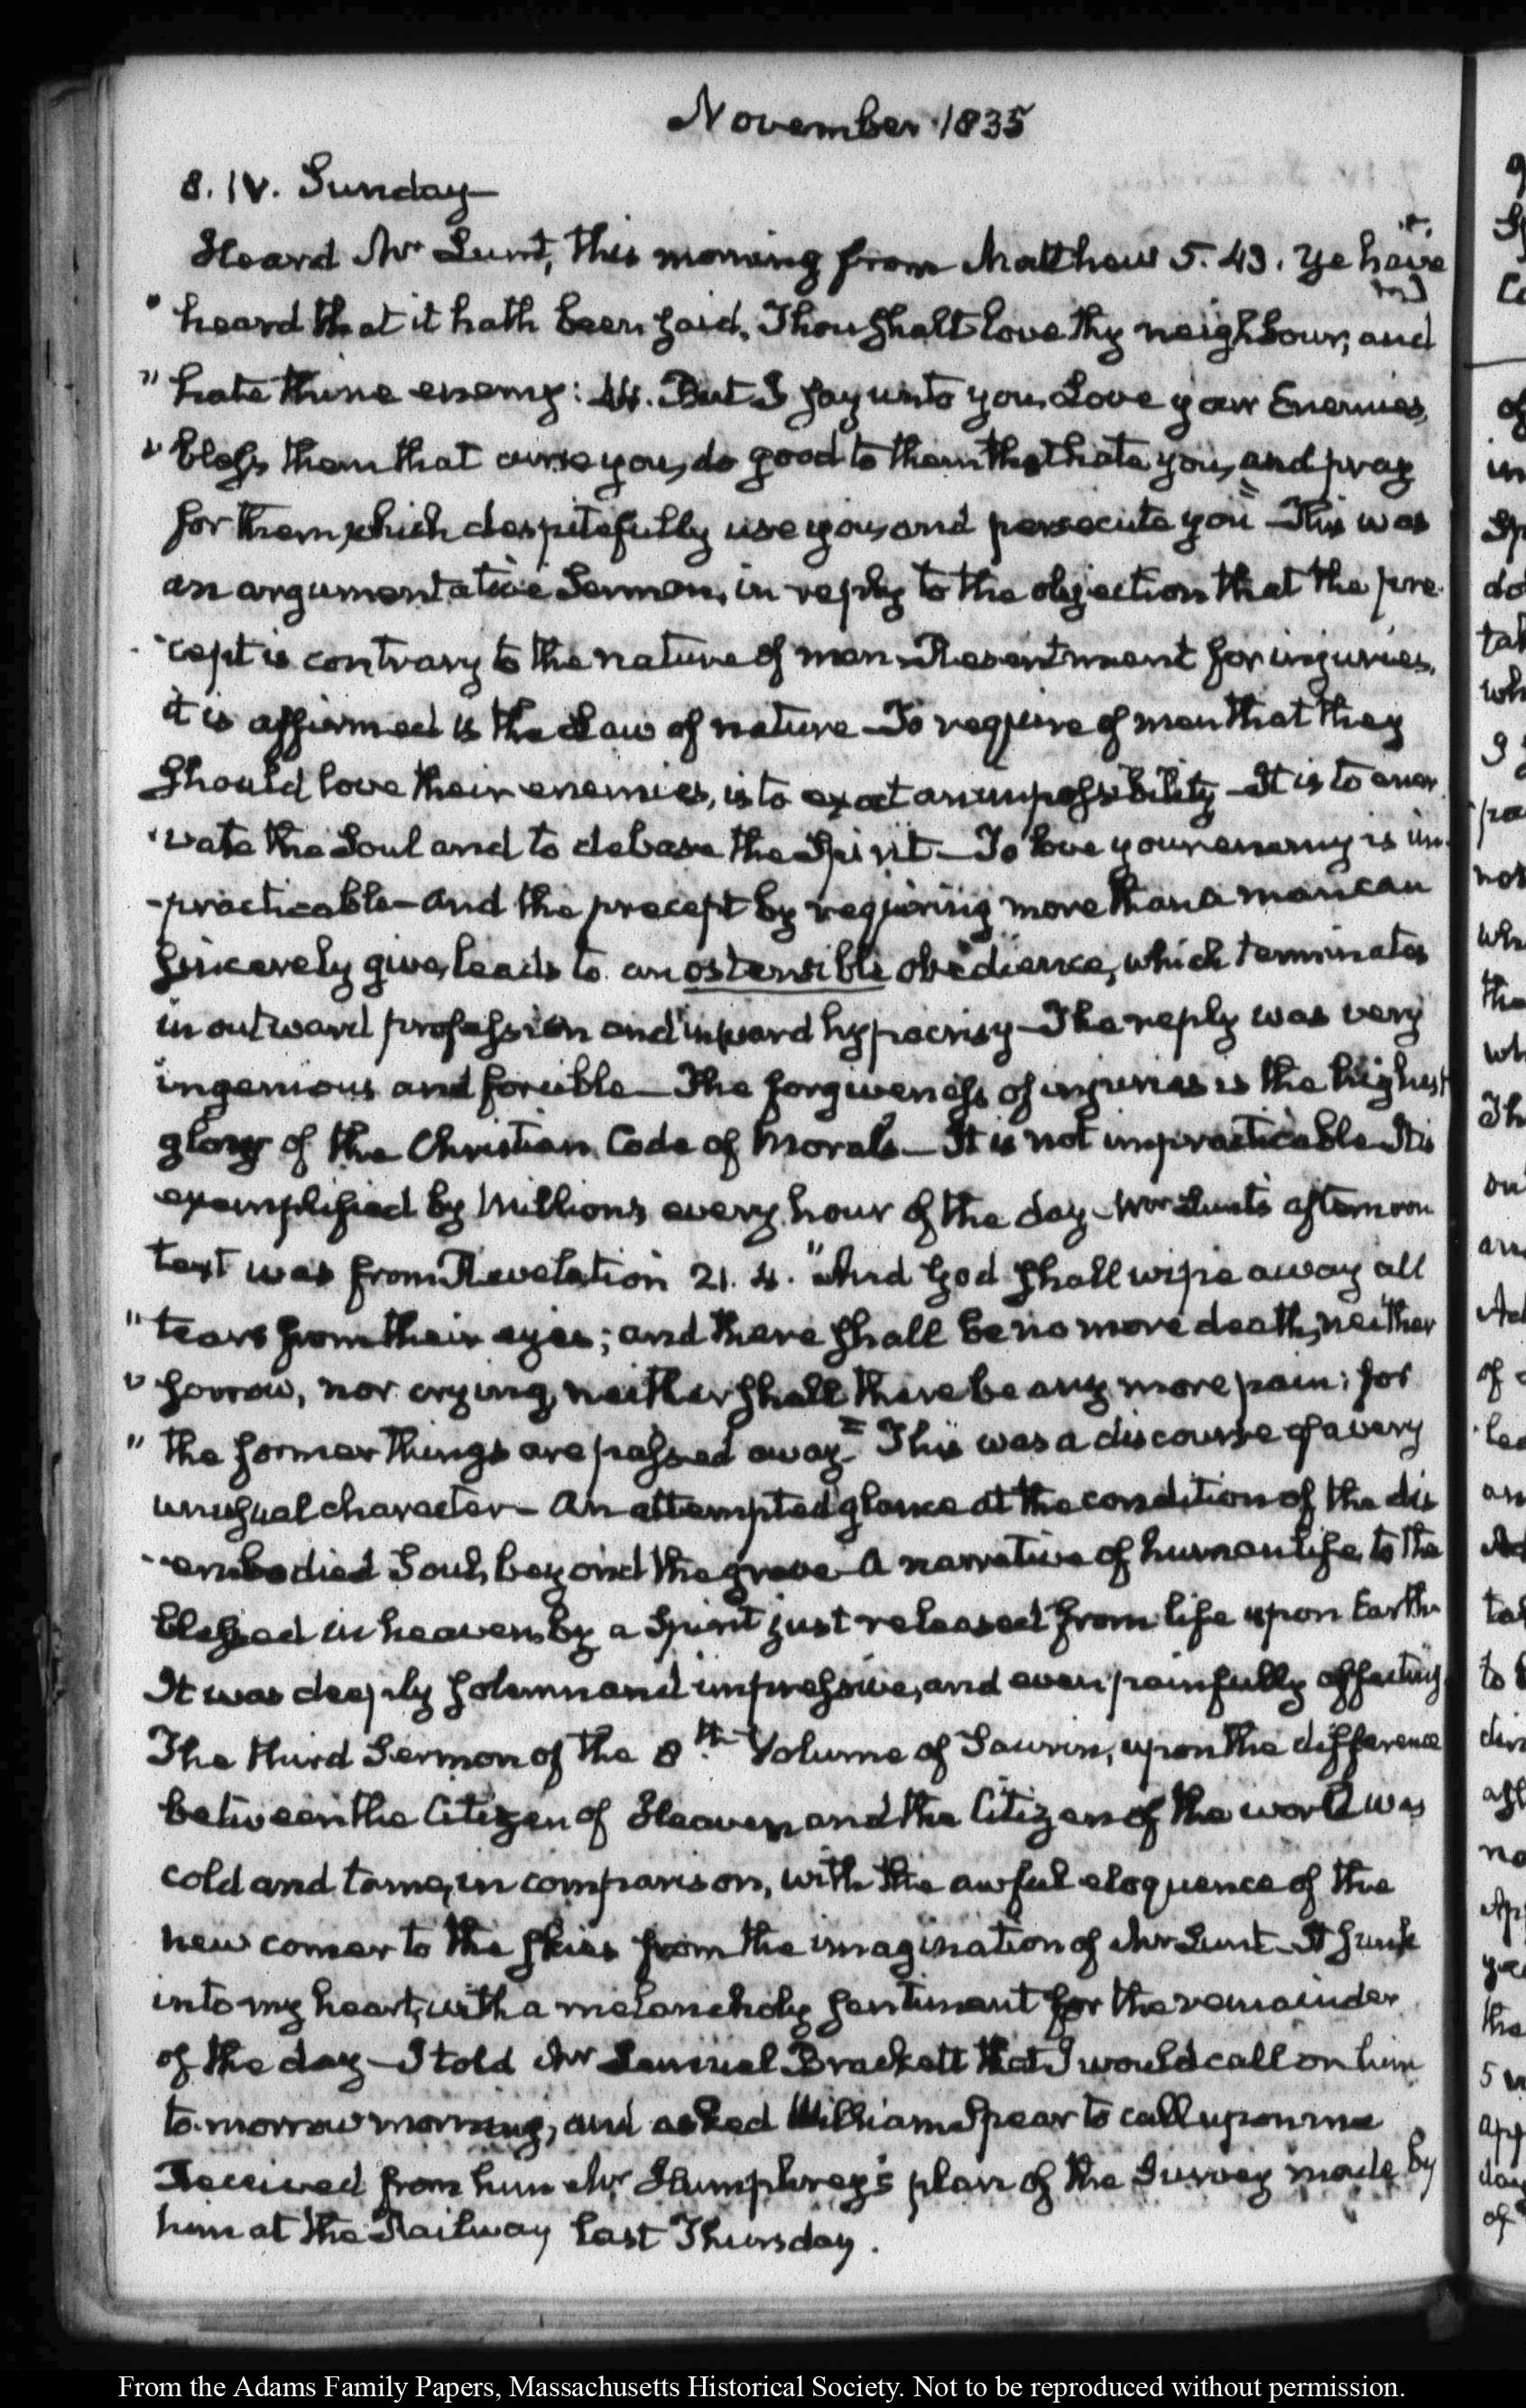 November 1835
8. IV. Sunday—
Heard Mr Lunt, this morning from Matthew 5. 43. Ye have
" heard that it hath been said, Thou shalt love thy neighbour, and
" hate thine enemy: 44. But I say unto you, Love your Enemies,
" bless them that curse you, do good to them that hate you, and pray
for them which despitefully use you, and persecute you" — This was
an argumentative Sermon, in reply to the objection that the pre-
-cept is contrary to the nature of man. Resentment for injuries,
it is affirmed is the Law of nature — To require of men that they
should love their enemies, is to exact an impossibility — It is to ener-
-vate the Soul and to debase the Spirit — To love your enemy is im-
-practicable — and the precept by requiring more than a man can
sincerely give, leads to an ostensible obedience, which terminates
in outward profession and inward hypocrisy — The reply was very
ingenious and forcible — The forgiveness of injuries is the highest
glory of the Christian Code of Morals — It is not impracticable It is
exemplified by Millions every hour of the day — Mr Lunt's afternoon
text was from Revelation 21. 4. "And God shall wipe away all
" tears from their eyes; and there shall be no more death, neither
" sorrow, nor crying, neither shall there be any more pain: for
" the former things are passed away" — This was a discourse of a very
unusual character — An attempted glance at the condition of the dis
-embodied Soul, beyond the grave — A narrative of human life, to the
blessed in heaven, by a Spirit just released from life upon Earth
It was deeply solemn and impressive, and even painfully affecting.
The third Sermon of the 8th Volume of Saurin, upon the difference
between the Citizen of Heaven and the Citizen of the world was
cold and tame, in comparison, with the awful eloquence of the
new comer to the skies from the imagination of Mr Lunt — It sunk
into my heart, with a melancholy sentiment for the remainder
of the day — I told Mr Lemuel Brackett that I would call on him
to-morrow morning, and asked William Spear to call upon me
Received from him Mr Humphrey's plan of the Survey made by
him at the Railway last Thursday.
From the Adams Family Papers, Massachusetts Historical Society. Not to be reproduced without permission.